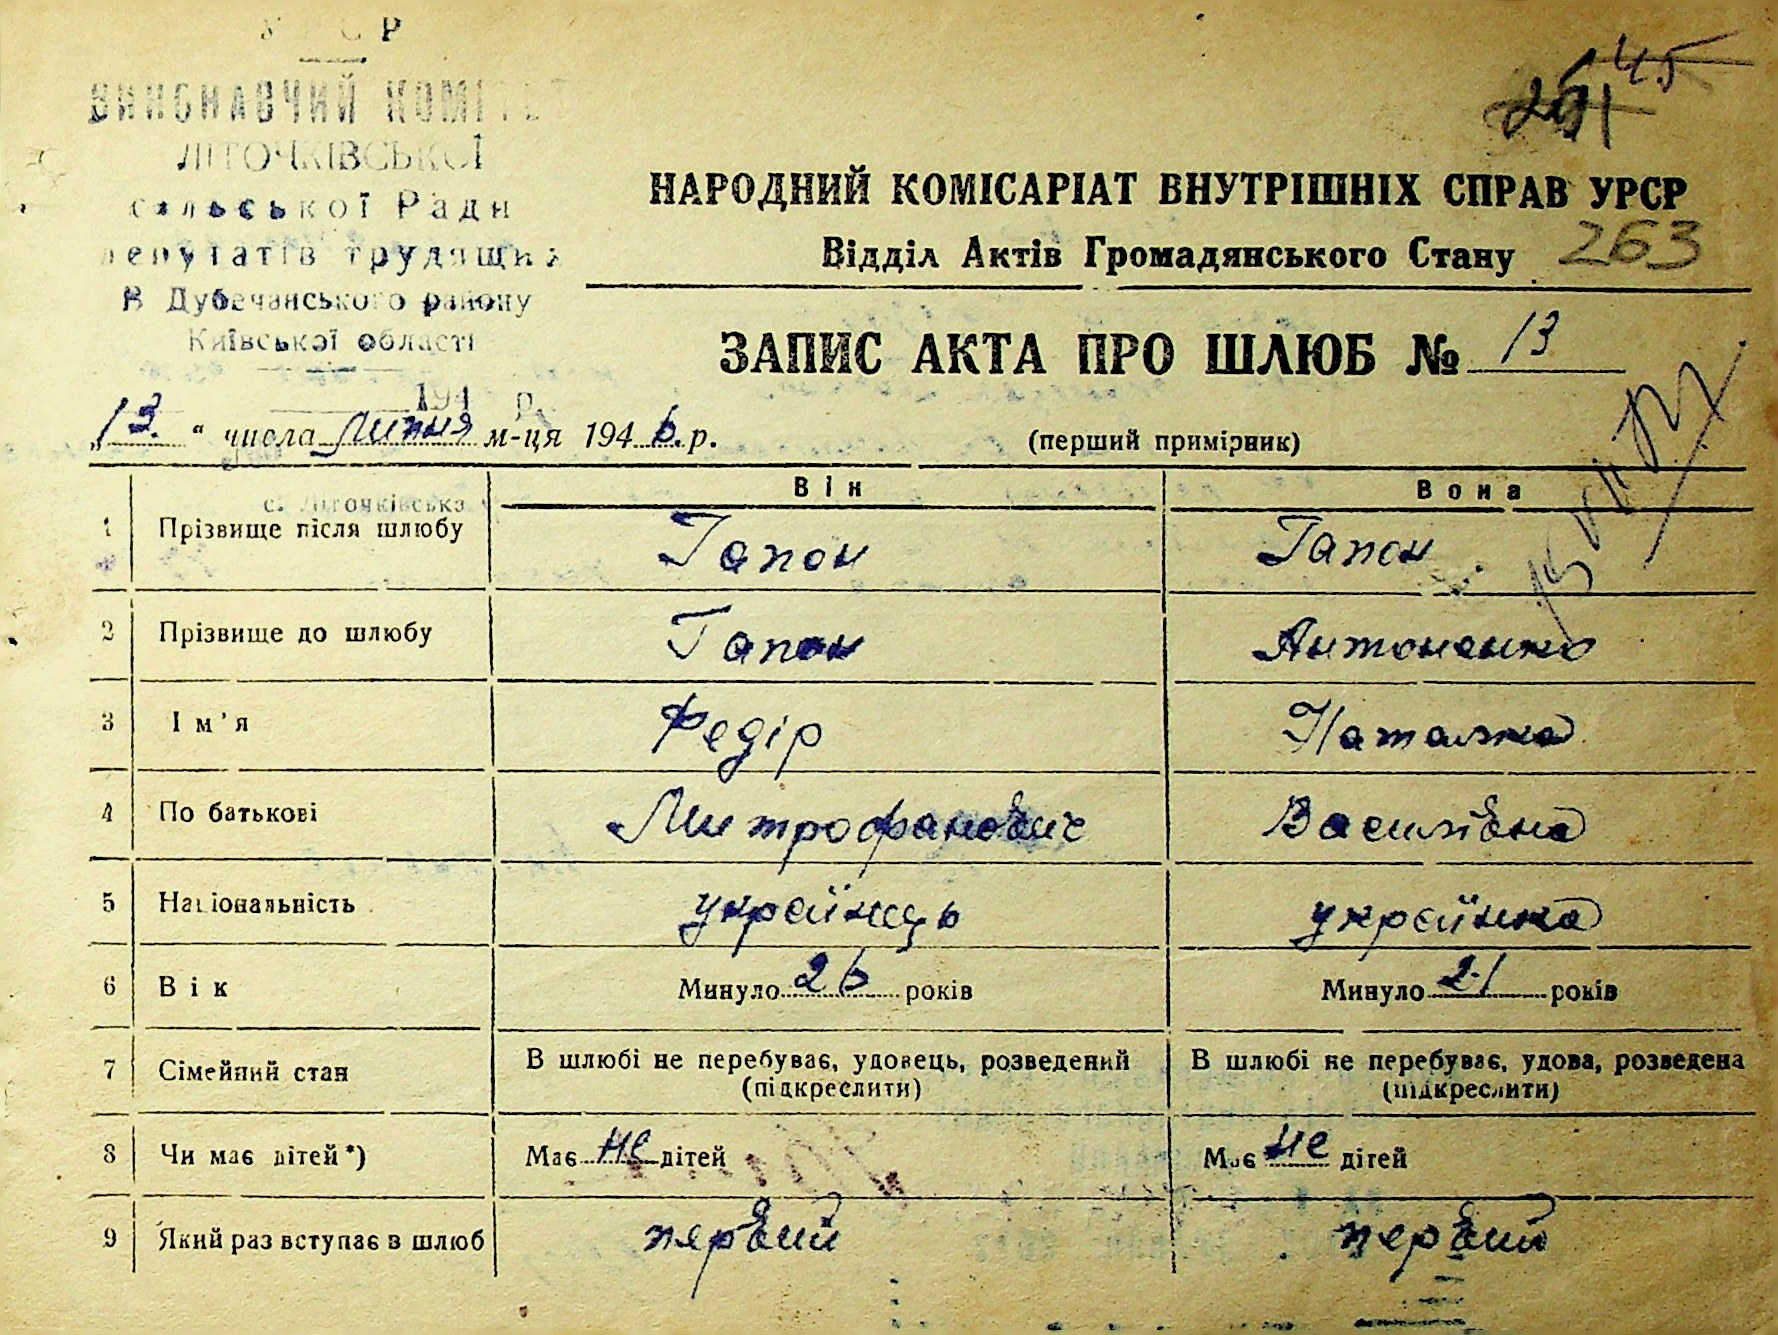 УРСР
ВИКОНАВЧИЙ КОМІТЕТ
ЛІТОЧКІВСЬКОЇ
сільської Ради
депутатів трудящих
В Дубечанського району
Київської області
194 р.
45
251
НАРОДНИЙ КОМІСАРІАТ ВНУТРІШНІХ СПРАВ УРСР
Відділ Актів Громадянського Стану 263
ЗАПИС АКТА ПРО ШЛЮБ № 13
„13." числа липня м-ця 1946 р.
(перший примірник)
с. Літочківська
Він Вона
1 Прізвище після шлюбу Гапон Гапон
2 Прізвище до шлюбу Гапон Антоненко
3 Ім'я Федір Наталка
4 По батькові Митрофанович Василівна
5 Національність українець українка
6 Вік Минуло 26 років Минуло 21 років
7 Сімейний стан В шлюбі не перебуває, удовець, розведений (підкреслити) В шлюбі не перебуває, удова, розведена (підкреслити)
8 Чи має дітей*) Має не дітей Має не дітей
9 Який раз вступає в шлюб первий первий